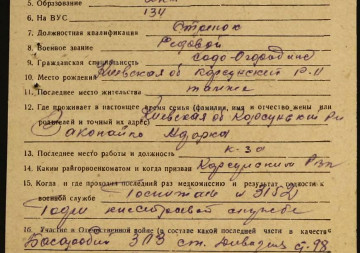 5. Образование
6. На ВУС 134
7. Должностная квалификация Стрелок
8. Военное звание Рядовой
9. Гражданская специальность Садо-Огородник
10. Место рождения Киевская об Корсунский р-н
11. Последнее место жительства также
12. Где проживает в настоящее время семья (фамилия, имя и отчество жены или
родителей и точный их адрес) Киевская об Корсунський Рн
Марка
13. Последнее место работы и должность к-з
14. Каким райгорвоенкоматом и когда призван Корсунским Рвк
15. Когда и где проходил последний раз медкомиссию и результат годности к
военной службе Госпиталь
Годен к строевой службе
16. Участие в Отечественной войне (в составе какой последней части в качестве
ЗПВ ст. Дивизия